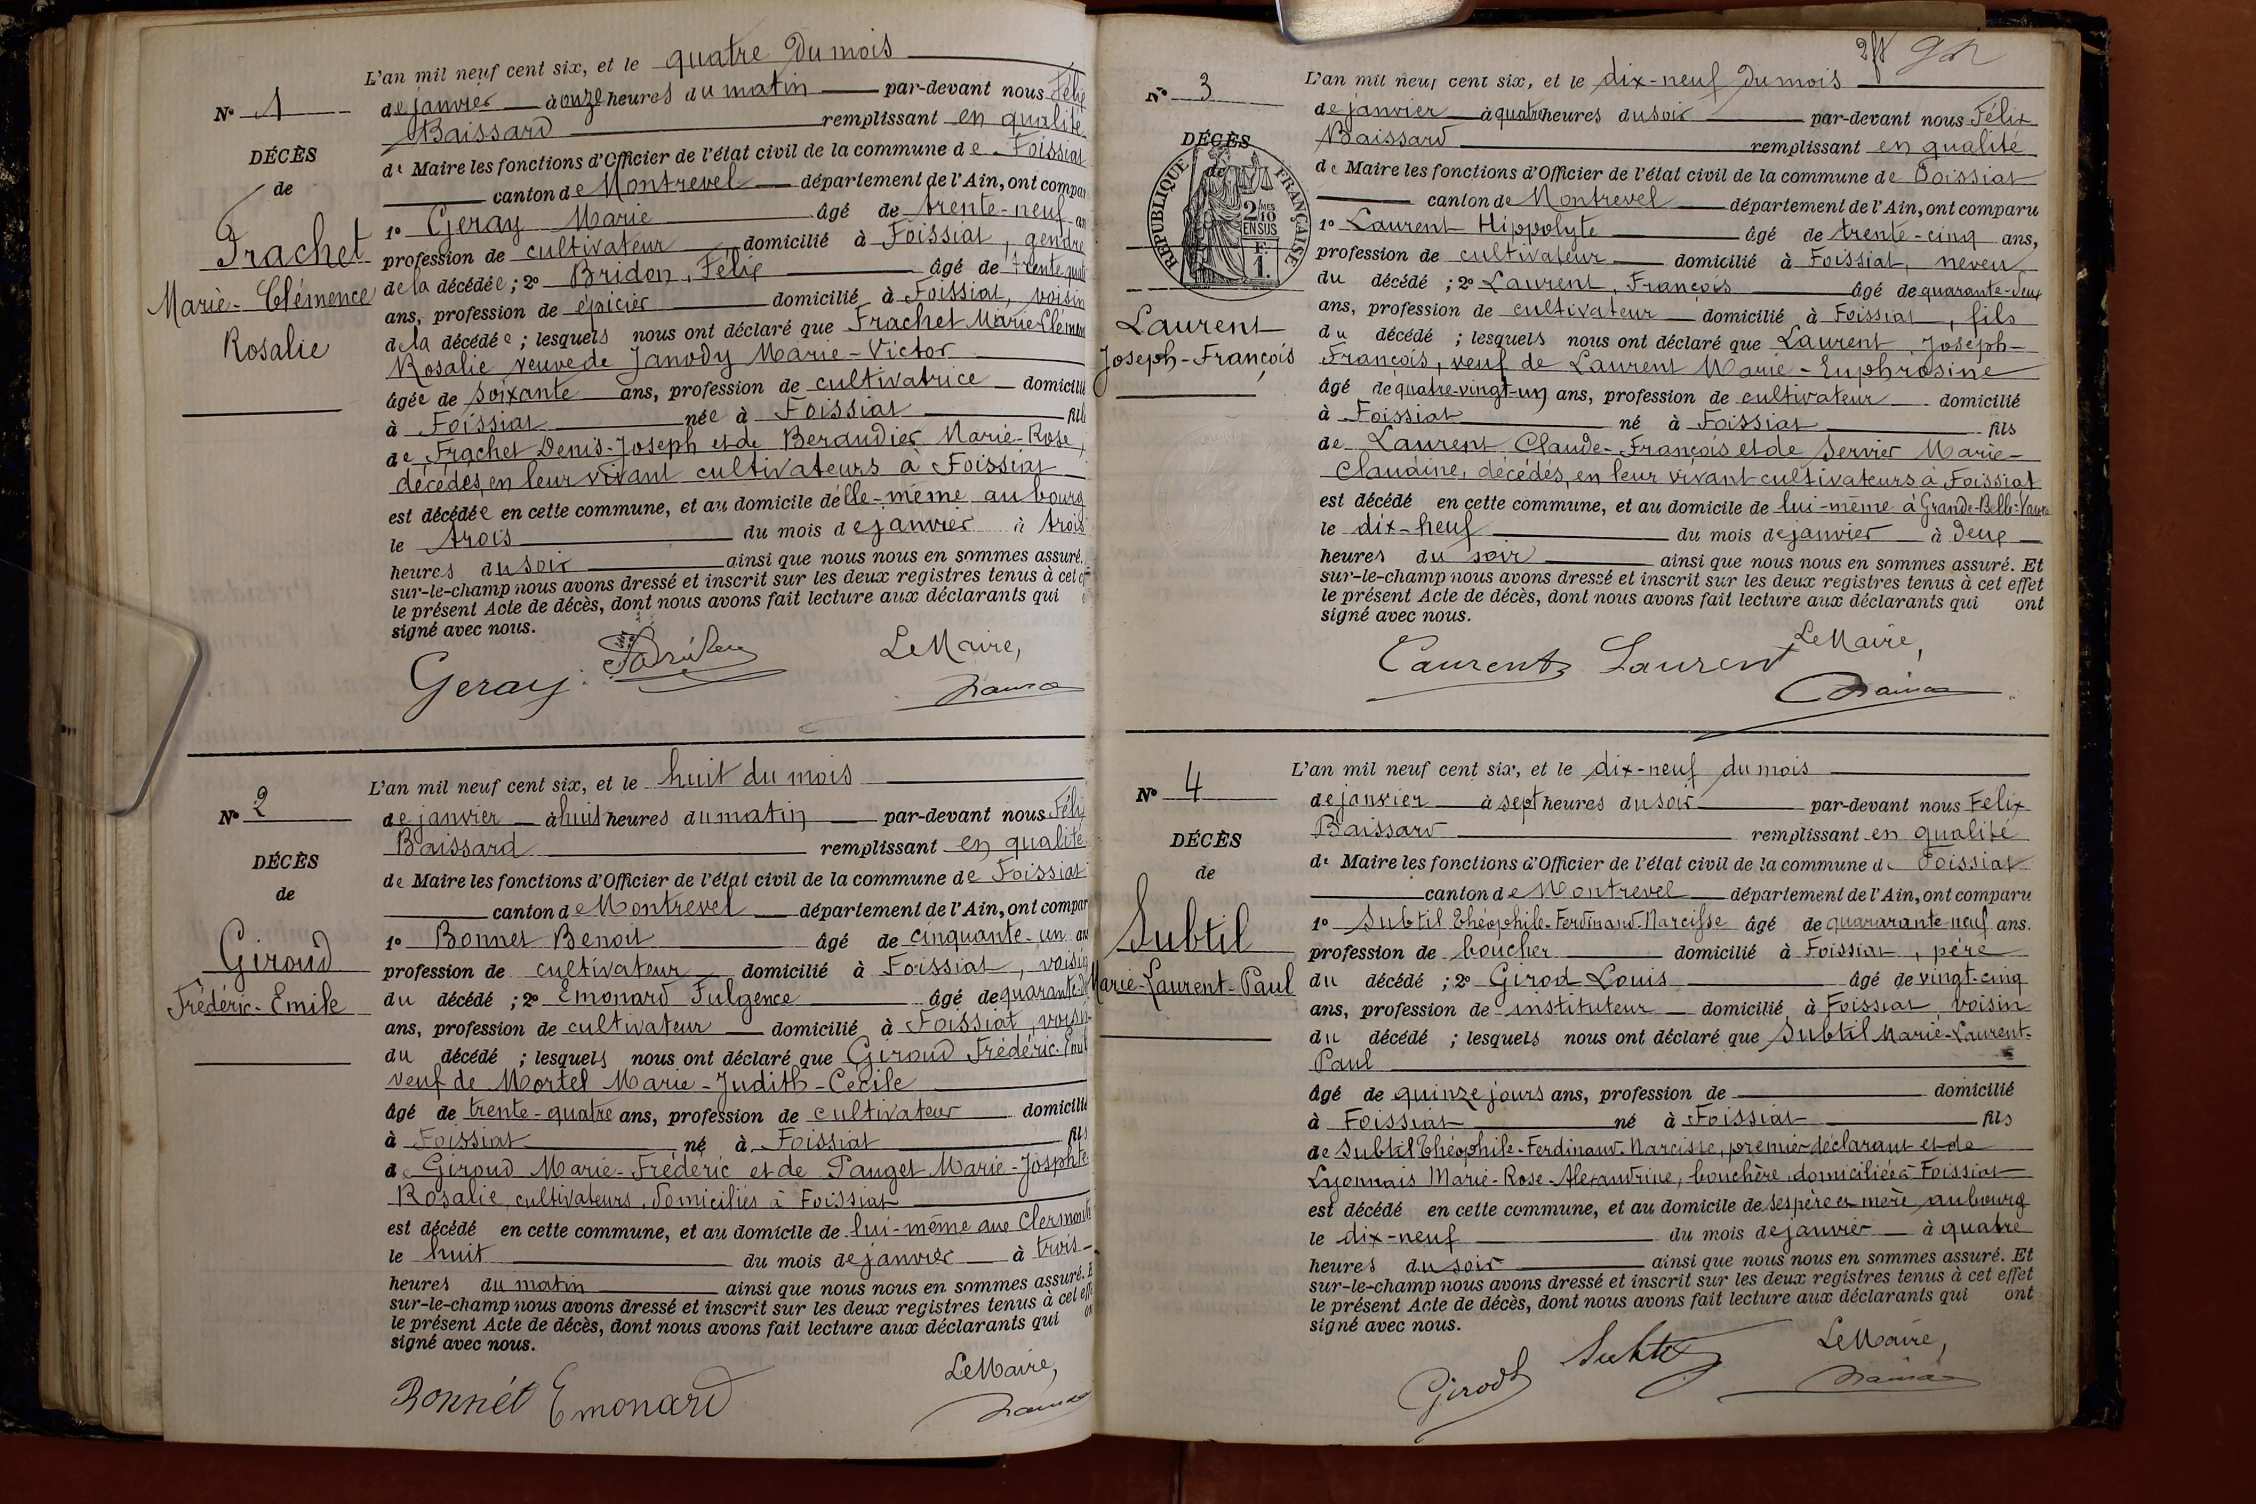 L'an mil neuf cent six, et le quatre du mois
N° 1
de janvier à onze heures du matin par-devant nous Félix
Baissard remplissant en qualité
DÉCÈS
de Maire les fonctions d'Officier de l'état civil de la commune de Foissiat
de
canton de Montrevel département de l'Ain, ont compar
1° Geray Marie âgé de trente-neuf an
Frachet
profession de cultivateur domicilié à Foissiat, gendre
Marie-Clémence
de la décédée ; 2° Bridon, Félix âgé de trente-quat
ans, profession de épicier domicilié à Foissiat, voisin
Rosalie
de la décédée ; lesquels nous ont déclaré que Frachet Marie-Clémen
Rosalie veuve de Janody Marie-Victor
âgée de soixante ans, profession de cultivatrice domicilié
à Foissiat née à Foissiat fils
de Frachet Denis-Joseph et de Beraudier Marie-Rose,
décédés, en leur vivant cultivateurs à Foissiat
est décédée en cette commune, et au domicile d'elle-même au bourg
le trois du mois de janvier à trois
heures du soir ainsi que nous nous en sommes assuré.
sur-le-champ nous avons dressé et inscrit sur les deux registres tenus à cet eff
le présent Acte de décès, dont nous avons fait lecture aux déclarants qui
signé avec nous.
Le Maire,
Geray
L'an mil neuf cent six, et le huit du mois
N° 2
de janvier à huit heures du matin par-devant nous Félix
Baissard remplissant en qualité
DÉCÈS
de Maire les fonctions d'Officier de l'état civil de la commune de Foissiat
de
canton de Montrevel département de l'Ain, ont compar
1° Bonnet Benoit âgé de cinquante-un an
Giroud
profession de cultivateur domicilié à Foissiat, voisin
Frédéric-Emile
du décédé ; 2° Emonard Fulgence âgé de quarante
ans, profession de cultivateur domicilié à Foissiat, voisin
du décédé ; lesquels nous ont déclaré que Giroud Frédéric-Emil
veuf de Mortel Marie-Judith-Cécile
âgé de trente-quatre ans, profession de cultivateur domicilié
à Foissiat né à Foissiat fils
de Giroud Marie-Frédéric et de Pauget Marie-Josphte
Rosalie, cultivateurs, domiciliés à Foissiat
est décédé en cette commune, et au domicile de lui-même aux Clermonts
le huit du mois de janvier à trois
heures du matin ainsi que nous nous en sommes assuré. E
sur-le-champ nous avons dressé et inscrit sur les deux registres tenus à cet effe
le présent Acte de décès, dont nous avons fait lecture aux déclarants qui on
signé avec nous.
Le Maire,
Bonnet Emonard
L'an mil neuf cent six, et le dix-neuf du mois
N° 3
de janvier à quatre heures du soir par-devant nous Félix
Baissard remplissant en qualité
DÉCÈS
de
RÉPUBLIQUE FRANÇAISE
2 MES 10 EN SUS
F. 1.
de Maire les fonctions d'Officier de l'état civil de la commune de Foissiat
canton de Montrevel département de l'Ain, ont comparu
1° Laurent Hippolyte âgé de trente-cinq ans,
profession de cultivateur domicilié à Foissiat, neveu
du décédé ; 2° Laurent, François âgé de quarante-deux
ans, profession de cultivateur domicilié à Foissiat, fils
Laurent
du décédé ; lesquels nous ont déclaré que Laurent, Joseph-
Joseph-François
François, veuf de Laurent Marie-Euphrosine
âgé de quatre-vingt-un ans, profession de cultivateur domicilié
à Foissiat né à Foissiat fils
de Laurent Claude-François et de Servier Marie-
Claudine, décédés, en leur vivant cultivateurs à Foissiat
est décédé en cette commune, et au domicile de lui-même à Grande-Belle-Vavre
le dix-neuf du mois de janvier à deux
heures du soir ainsi que nous nous en sommes assuré. Et
sur-le-champ nous avons dressé et inscrit sur les deux registres tenus à cet effet
le présent Acte de décès, dont nous avons fait lecture aux déclarants qui ont
signé avec nous.
Le Maire,
Laurent Laurent
L'an mil neuf cent six, et le dix-neuf du mois
N° 4
de janvier à sept heures du soir par-devant nous Felix
Baissard remplissant en qualité
DÉCÈS
de Maire les fonctions d'Officier de l'état civil de la commune de Foissiat
de
canton de Montrevel département de l'Ain, ont comparu
1° Subtil Théophile-Ferdinand-Narcisse âgé de quararante-neuf ans.
Subtil
profession de boucher domicilié à Foissiat, père
Marie-Laurent-Paul
du décédé ; 2° Girod Louis âgé de vingt-cinq
ans, profession de instituteur domicilié à Foissiat voisin
du décédé ; lesquels nous ont déclaré que Subtil Marie-Laurent-
Paul
âgé de quinze jours ans, profession de domicilié
à Foissiat né à Foissiat fils
de Subtil Théophile-Ferdinand-Narcisse, premier déclarant et de
Lyonnais Marie-Rose-Alexandrine, bouchère, domiciliée à Foissiat
est décédé en cette commune, et au domicile de ses père et mère au bourg
le dix-neuf du mois de janvier à quatre
heures du soir ainsi que nous nous en sommes assuré. Et
sur-le-champ nous avons dressé et inscrit sur les deux registres tenus à cet effet
le présent Acte de décès, dont nous avons fait lecture aux déclarants qui ont
signé avec nous.
Le Maire,
Girod Subtil